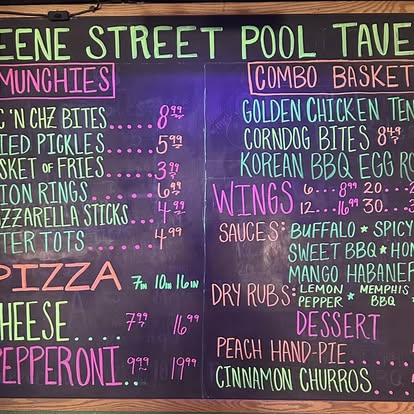 EENE STREET POOL TAVE
MUNCHIES
C 'N CHZ BITES.....8.99
IED PICKLES.....5.99
SKET OF FRIES.....3.99
ION RINGS.....6.99
ZZARELLA STICKS....4.99
TER TOTS.....4.99
PIZZA 7IN 10IN 16IN
HEESE.... 7.99 16.99
PEPPERONI.. 9.99 19.99
COMBO BASKET
GOLDEN CHICKEN TEN
CORNDOG BITES 8.49
KOREAN BBQ EGG RO
WINGS 6...8.99 20...2
12...16.99 30...3
SAUCES: BUFFALO * SPICY
SWEET BBQ * HON
MANGO HABANER
DRY RUBS: LEMON PEPPER * MEMPHIS BBQ
DESSERT
PEACH HAND-PIE....
CINNAMON CHURROS....